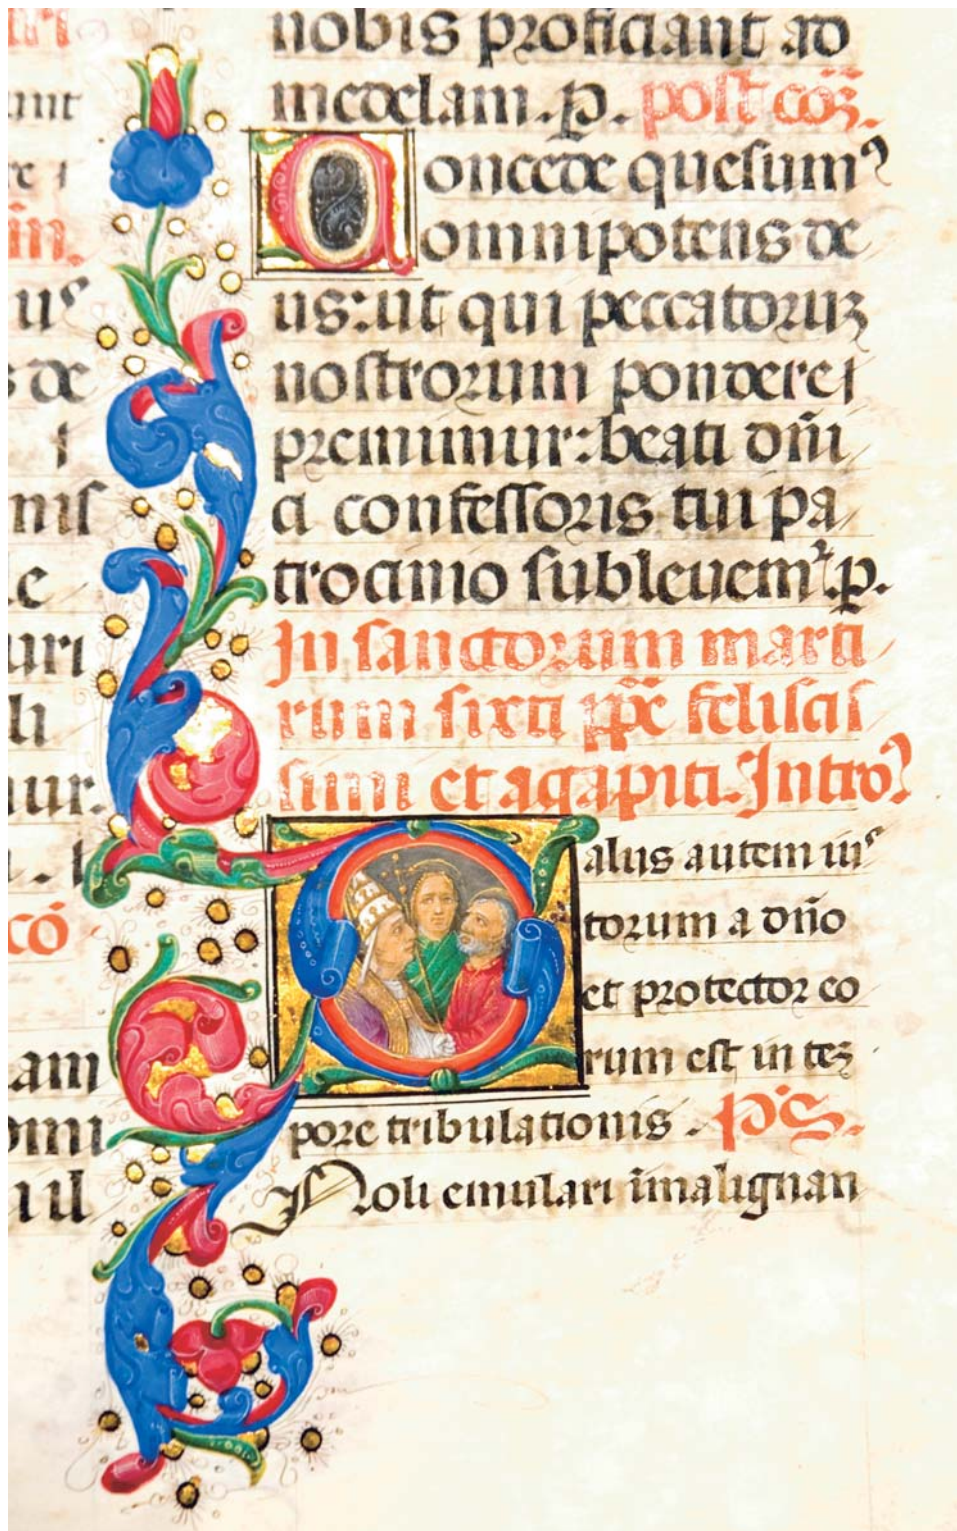 nobis proficiant ad
medelam. p. post cōȝ.
Concede quesumꝰ
omnipotens de
us: ut qui peccatoruȝ
nostrorum pondere
premimur: beati dñi
ci confessoris tui pa
trocinio subleuemᷣ. p.
In sanctorum marti
rum sixti ppe feliscis
simi et agapiti. Introꝰ
Salus autem iusꝰ
torum a dño
et protector eo
rum est in teȝ
pore tribulationis. pˢ.
Noli emulari ī malignan
unt
in.
us
de
nis
e
uri
li
ur.
cō
am
omi
ul